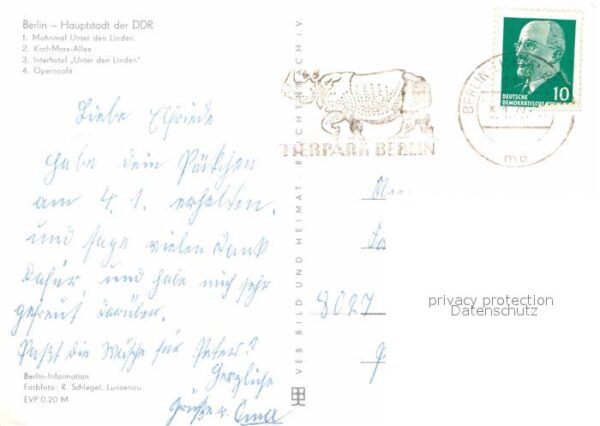 Berlin – Hauptstadt der DDR
1. Mahnmal Unter den Linden
2. Karl-Marx-Allee
3. Interhotel „Unter den Linden"
4. Operncafé
Liebe Elfriede
habe dein Päckchen
am 4. 1. erhalten.
und sage vielen Dank
dafür, und habe mich sehr
gefreut darüber.
Paßt die Wäsche für Peter?
Herzliche
Grüße v.
Berlin-Information
Farbfoto: R. Schlegel, Lunzenau
EVP 0.20 M
VEB BILD UND HEIMAT · REICHENBACH i. V.
TIERPARK BERLIN
BERLIN
mo
DEUTSCHE
DEMOKRATISCHE
10
8027
privacy protection
Datenschutz